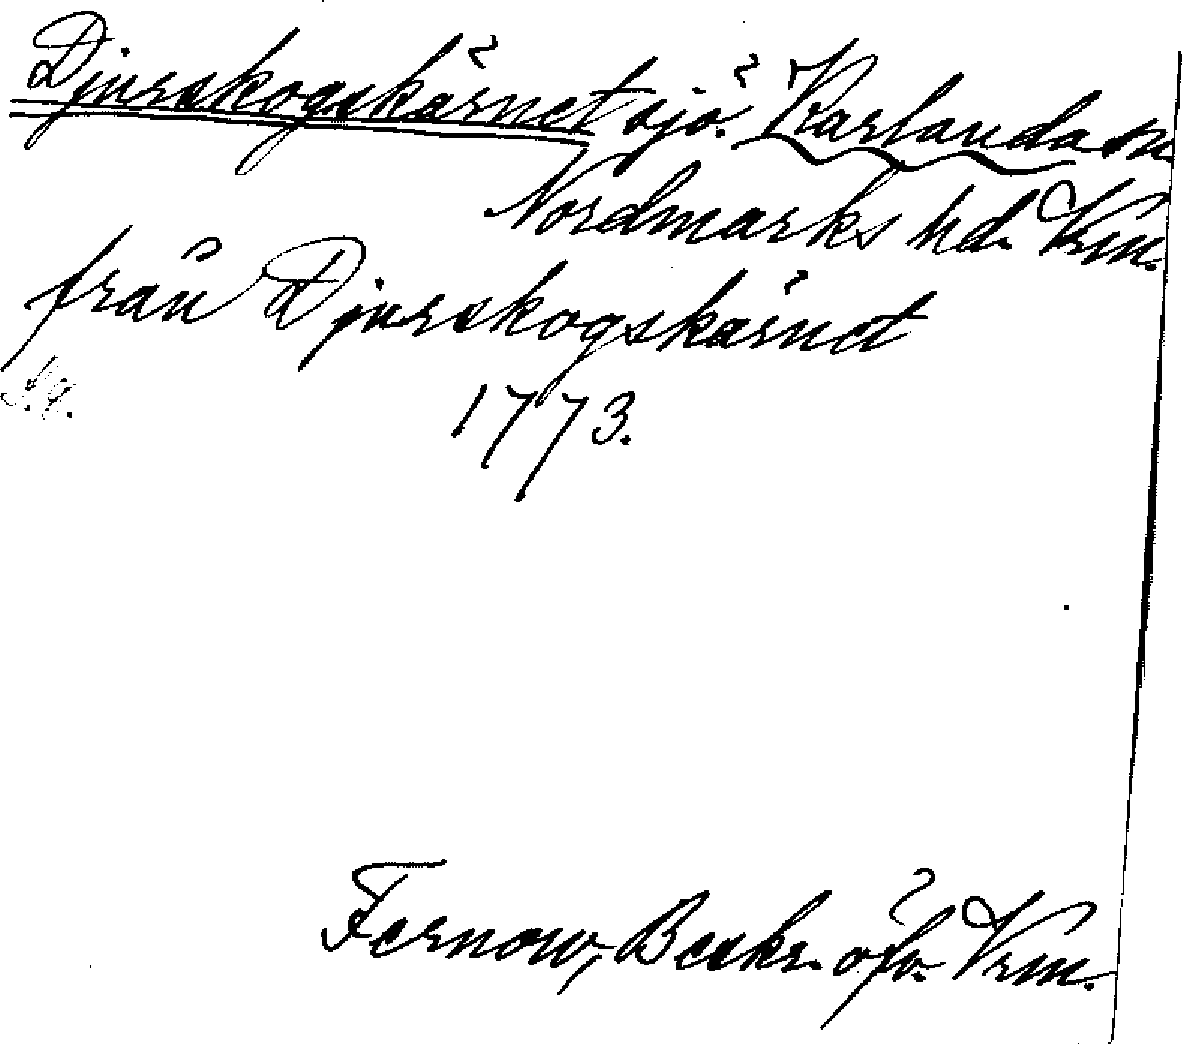 Djurskogskärnet sjö. Karlanda sn
Nordmarks hd. Vrm.
från Djurskogskärnet
1773.
Fernow, Beskr. öfv. Vrm.